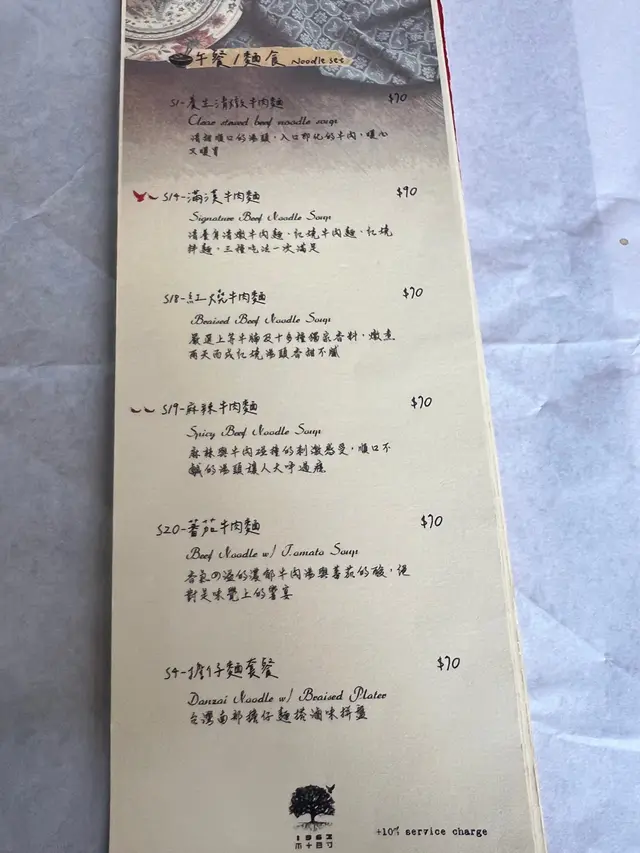 午餐/麵食 Noodle set
S1-養生清燉牛肉麵 $70
Clear stewed beef noodle soup
清甜順口的湯頭，入口即化的牛肉，暖心
又暖胃
S14-滿漢牛肉麵 $90
Signature Beef Noodle Soup
清養身清燉牛肉麵、紅燒牛肉麵、紅燒
拌麵，三種吃法一次滿足
S18-紅燒牛肉麵 $70
Braised Beef Noodle Soup
嚴選上等牛腩及十多種獨家香料，燉煮
兩天而成紅燒湯頭香甜不膩
S19-麻辣牛肉麵 $70
Spicy Beef Noodle Soup
麻辣與牛肉碰撞的刺激感受，順口不
鹹的湯頭讓人大呼過癮
S20-蕃茄牛肉麵 $70
Beef Noodle w/ Tomato Soup
香氣四溢的濃郁牛肉湯與蕃茄的酸，絕
對是味覺上的饗宴
S4-擔仔麵套餐 $70
Danzai Noodle w/ Braised Plater
台灣南部擔仔麵搭滷味拼盤
1962
+10% service charge